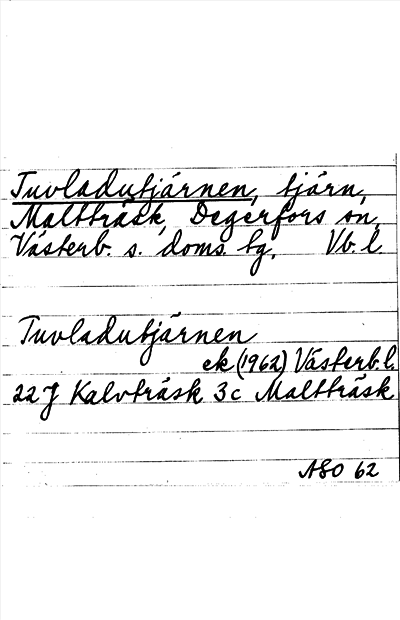 Tuvladutjärnen, tjärn,
Maltträsk, Degerfors sn,
Västerb. s. doms. tg, Vb. l.
Tuvladutjärnen
ek (1962) Västerb. l.
22 J Kalvträsk 3c Maltträsk
ASO 62